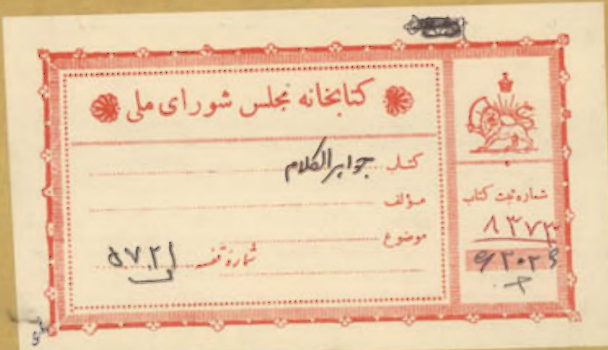 کتابخانه مجلس شورای ملی
کتاب جواهرالکلام
مؤلف
موضوع
شماره قفسه ۵۷۲۱
شماره ثبت کتاب
۸۳۷۲